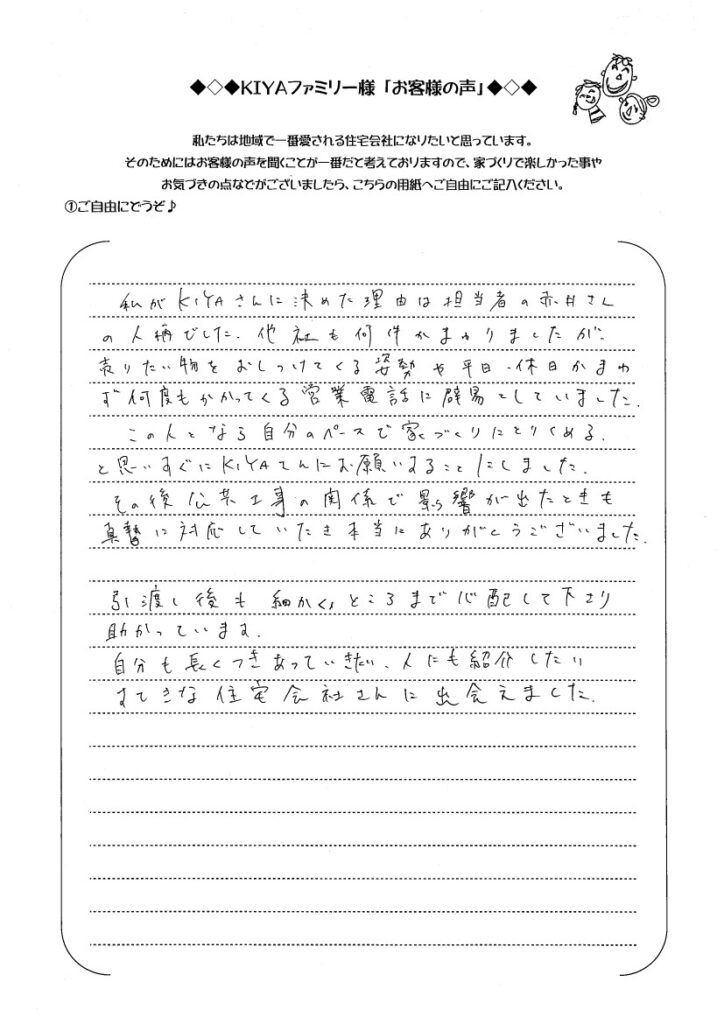 ◆◇◆KIYAファミリー様「お客様の声」◆◇◆
私たちは地域で一番愛される住宅会社になりたいと思っています。
そのためにはお客様の声を聞くことが一番だと考えておりますので、家づくりで楽しかった事や
お気づきの点などがございましたら、こちらの用紙へご自由にご記入ください。
①ご自由にどうぞ♪
私がKIYAさんに決めた理由は担当者の赤井さん
の人柄でした。他社も何件かまわりましたが、
売りたい物をおしつけてくる姿勢や平日・休日かまわ
ず何度もかかってくる営業電話に辟易としていました。
この人となら自分のペースで家づくりにとりくめる、
と思いすぐにKIYAさんにお願いすることにしました。
その後公共工事の関係で影響が出たときも
真摯に対応していただき本当にありがとうございました。
引渡し後も細かいところまで心配して下さり
助かっています。
自分も長くつきあっていきたい、人にも紹介したい
すてきな住宅会社さんに出会えました。